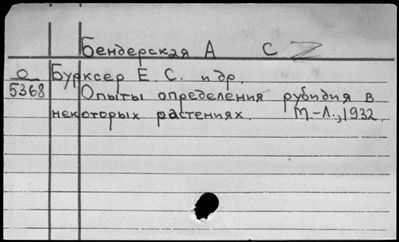 Бендерская А С
О
5368
Бурксер Е. С. и др.
Опыты определения рубидия в
некоторых растениях. М.-Л., 1932.